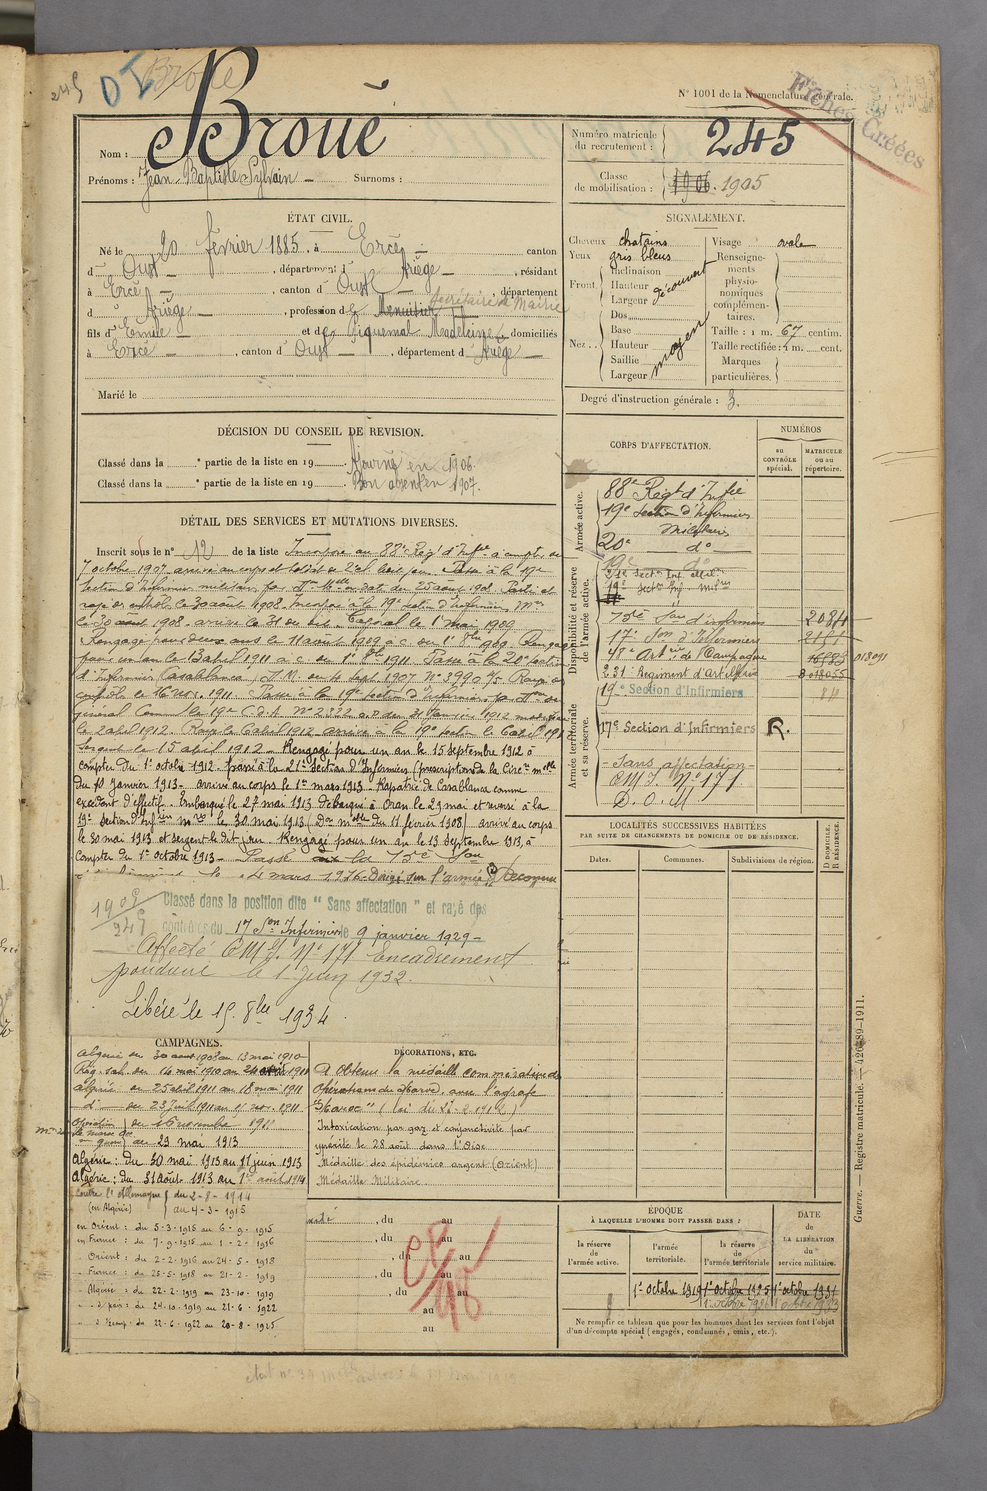 245
Broue
Fiches Créées
N° 1001 de la Nomenclature générale.
Nom : Broué
Prénoms : Jean-Baptiste Sylvain — Surnoms :
Numéro matricule du recrutement : 245
Classe de mobilisation : 1906. 1905
ÉTAT CIVIL.
Né le 20 février 1885, à Ercé — canton
d' Oust —, département d' Ariège —, résidant
à Ercé —, canton d' Oust —, département
d' Ariège —, profession de Menuisier Secrétaire de Mairie
fils d' Emile — et de Piquemal Madeleine domiciliés
à Ercé —, canton d' Oust —, département d' Ariège —
Marié le
SIGNALEMENT.
Cheveux chatains
Yeux gris bleus
Front : Inclinaison
Hauteur découvert
Largeur
Nez : Dos
Base
Hauteur moyen
Saillie
Largeur
Visage ovale
Renseignements physionomiques complémentaires.
Taille : 1 m. 67 centim.
Taille rectifiée : 1 m. cent.
Marques particulières.
Degré d'instruction générale : 3.
DÉCISION DU CONSEIL DE REVISION.
Classé dans la e partie de la liste en 19 . Ajourné en 1906.
Classé dans la e partie de la liste en 19 . Bon absent en 1907.
DÉTAIL DES SERVICES ET MUTATIONS DIVERSES.
Inscrit sous le n° 12 de la liste Incorporé au 88e Rég' d'Inf'ie à compt. du
7 octobre 1907 arrivé au corps et soldat de 2e cl. ledit jour. Passé à la 19e
section d'Infirmiers militaires par 25 août 1908. Parti et
rayé des contrôles le 30 août 1908. Incorporé à la 19e section d'Infirmiers M'res
le 30 août 1908. arrivé le 31 du dit. Caporal le 1er mai 1909
Rengagé pour deux ans le 11 août 1909 à c. du 1er 8bre 1909. Rengagé
pour un an le 13 abril 1911 à c. du 1er 8bre 1911. Passé à la 20e section
d'Infirmiers (Casablanca) du 4 sept. 1907 N° 3990 Rayé des
contrôle le 16 nov. 1911. Passé à la 19e section d'Infirmiers par
général Comm' le 19e C.d'A. N° 2322 1912
le 2 abril 1912. Rayé le 6 abril 1912. arrivé à la 19e section le 6 abril 1912
Sergent le 15 abril 1912 — Rengagé pour un an le 15 septembre 1912 à
compter du 1er octobre 1912. Passé à la 21e Section d'Infirmiers (prescription de la Circ're m'elle
du 10 janvier 1913 — arrivé au corps le 1er mars 1913. Rapatrié de Casablanca comme
excédent d'effectif. Embarqué le 27 mai 1913 débarqué à Oran le 29 mai et versé à la
19e section d'Infiers m'res le 30 mai 1913 (Don m'elle du 11 février 1908) arrivé au corps
le 30 mai 1913 et sergent le dit jour. Rengagé pour un an le 13 septembre 1913, à
compter du 1er octobre 1913 — Passé à la 15e Son
le 4 mars 1916. Dirigé sur l'armée
1905
245
Classé dans la position dite “ Sans affectation ” et rayé des
contrôles du 17e Son Infirmiers le 9 janvier 1929 —
Affecté C.M.I. N° 171 Encadrement
le 1er Juin 1932.
Libéré le 15. 8bre 1934.
CORPS D'AFFECTATION.
NUMÉROS
au CONTRÔLE spécial.
MATRICULE ou au répertoire.
Armée active.
88e Reg't d'Inf'ie
19e section d'Infirmiers
Militaires
20e — do —
Disponibilité et réserve de l'armée active.
21e Sect'on Inf. mil're
19e Sect'on Inf. Mil'res
15e Son d'infirmiers 20844
17e Son d'Infirmiers 2151
48e Art'ie de Campagne 16593 013091
231e Régiment d'artillerie
19e Section d'Infirmiers
Armée territoriale et sa réserve.
17e Section d'Infirmiers R.
— Sans affectation —
C.M.I. N° 171
D.O.M
LOCALITÉS SUCCESSIVES HABITÉES
PAR SUITE DE CHANGEMENTS DE DOMICILE OU DE RÉSIDENCE.
Dates. Communes. Subdivisions de région. D DOMICILE. R RÉSIDENCE.
CAMPAGNES.
Algérie du 30 août 1908 au 13 mai 1910
Rég. sah. du 14 mai 1910 au 24 avril 1911
Algérie du 25 abril 1911 au 18 mai 1911
— d° — du 23 juil 1911 au 15 nov. 1911
Opération du Maroc du 16 novembre 1911
guerre au 29 mai 1913
Algérie : du 30 mai 1913 au 11 juin 1913
Algérie : du 31 Août 1913 au 1er août 1914
Contre l'Allemagne du 2-8-1914
(en Algérie) au 4-3-1915
en Orient : du 5-3-1915 au 6-9-1915
en France : du 7-9-1915 au 1-2-1916
„ Orient : du 2-2-1916 au 24-5-1918
„ France : du 25-5-1918 au 21-2-1919
„ Algérie : du 22-2-1919 au 23-10-1919
„ d° paix : du 24-10-1919 au 21-6-1922
du 22-6-1922 au 20-8-1925
DÉCORATIONS, ETC.
A obtenu la médaille commémorative des
Opérations du Maroc, avec l'agrafe
"Maroc" (loi du 22-2-1912)
Intoxication par gaz et conjonctivite par
ypérite le 28 août dans l'Oise
Médaille des épidémies argent (Orient)
Médaille Militaire.
, du au
, du au
, du au
, du au
, du au
au
au
CF
98
ÉPOQUE
À LAQUELLE L'HOMME DOIT PASSER DANS :
la réserve de l'armée active.
l'armée territoriale.
la réserve de l'armée territoriale
DATE de LA LIBÉRATION du service militaire.
1er octobre 1919 1er octobre 1925 1er octobre 1931
Ne remplir ce tableau que pour les hommes dont les services font l'objet
d'un décompte spécial (engagés, condamnés, omis, etc.).
Guerre. — Registre matricule. — 426-89-1911.